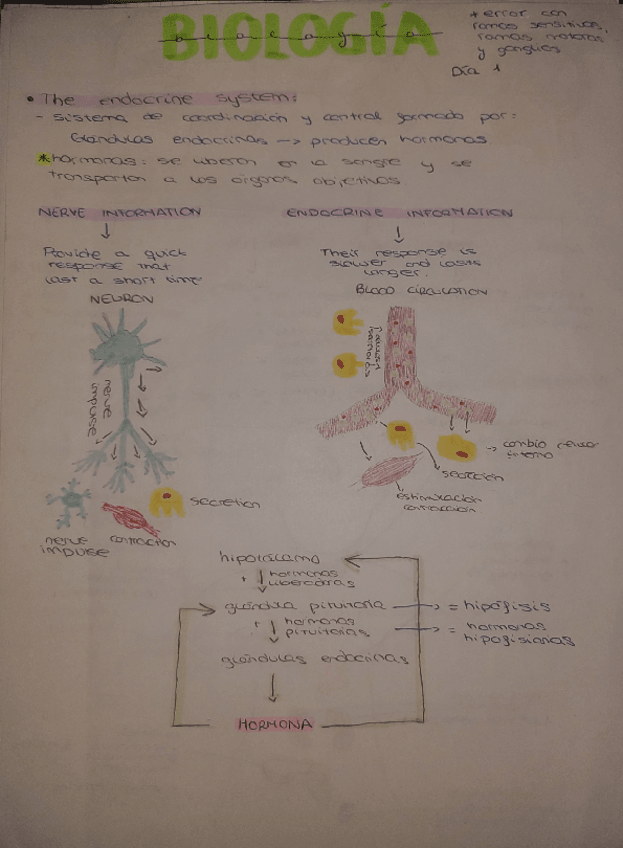 BIOLOGÍA
biología
* error con
ramas sensitivas,
ramas motoras
y ganglios
Día 1
• The endocrine system:
- Sistema de coordinación y control formado por:
Glándulas endocrinas → producen hormonas
* hormonas: se liberan en la sangre y se
transportan a los órganos objetivos
NERVE INFORMATION
Provide a quick
response that
last a short time
NEURON
nerve
impulse
secretion
nerve
impulse
contraction
ENDOCRINE INFORMATION
Their response is
slower and lasts
longer.
BLOOD CIRCULATION
hormonas
→ cambio
interno
secreción
estimulación
contracción
hipotálamo
+ ↓ hormonas
liberadoras
glándula pituitaria → = hipófisis
+ ↓ hormonas
pituitarias → = hormonas
hipofisianas
glándulas endocrinas
HORMONA